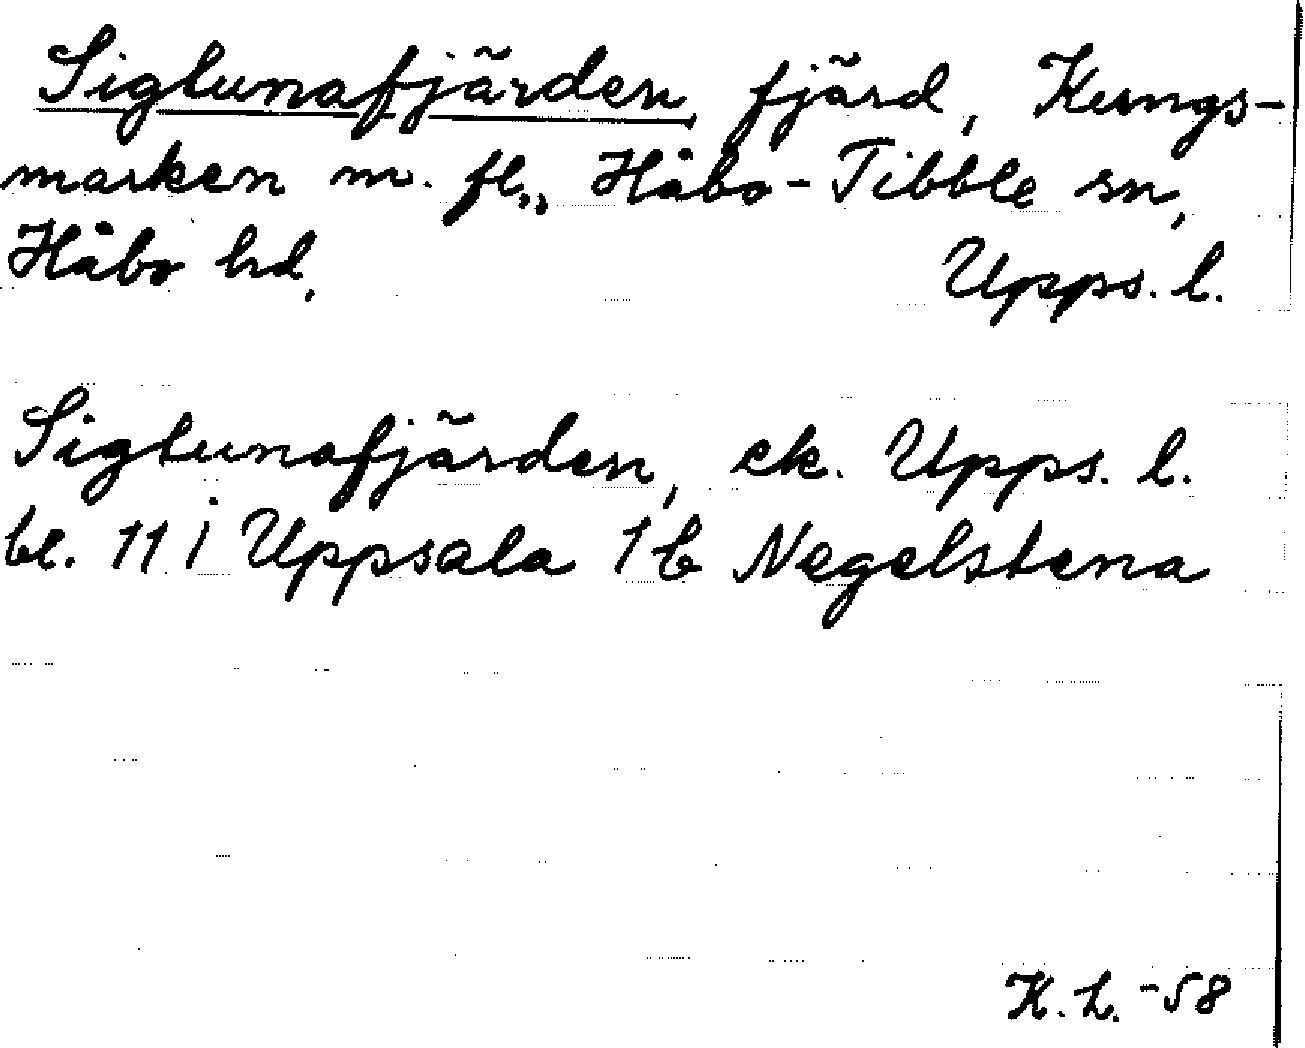 Sigtunafjärden, fjärd, Kungs-
marken m. fl., Håbo-Tibble sn,
Håbo hd, Upps. l.
Sigtunafjärden, ek. Upps. l.
bl. 11 i Uppsala 1 b Negelstena
K. h. -58